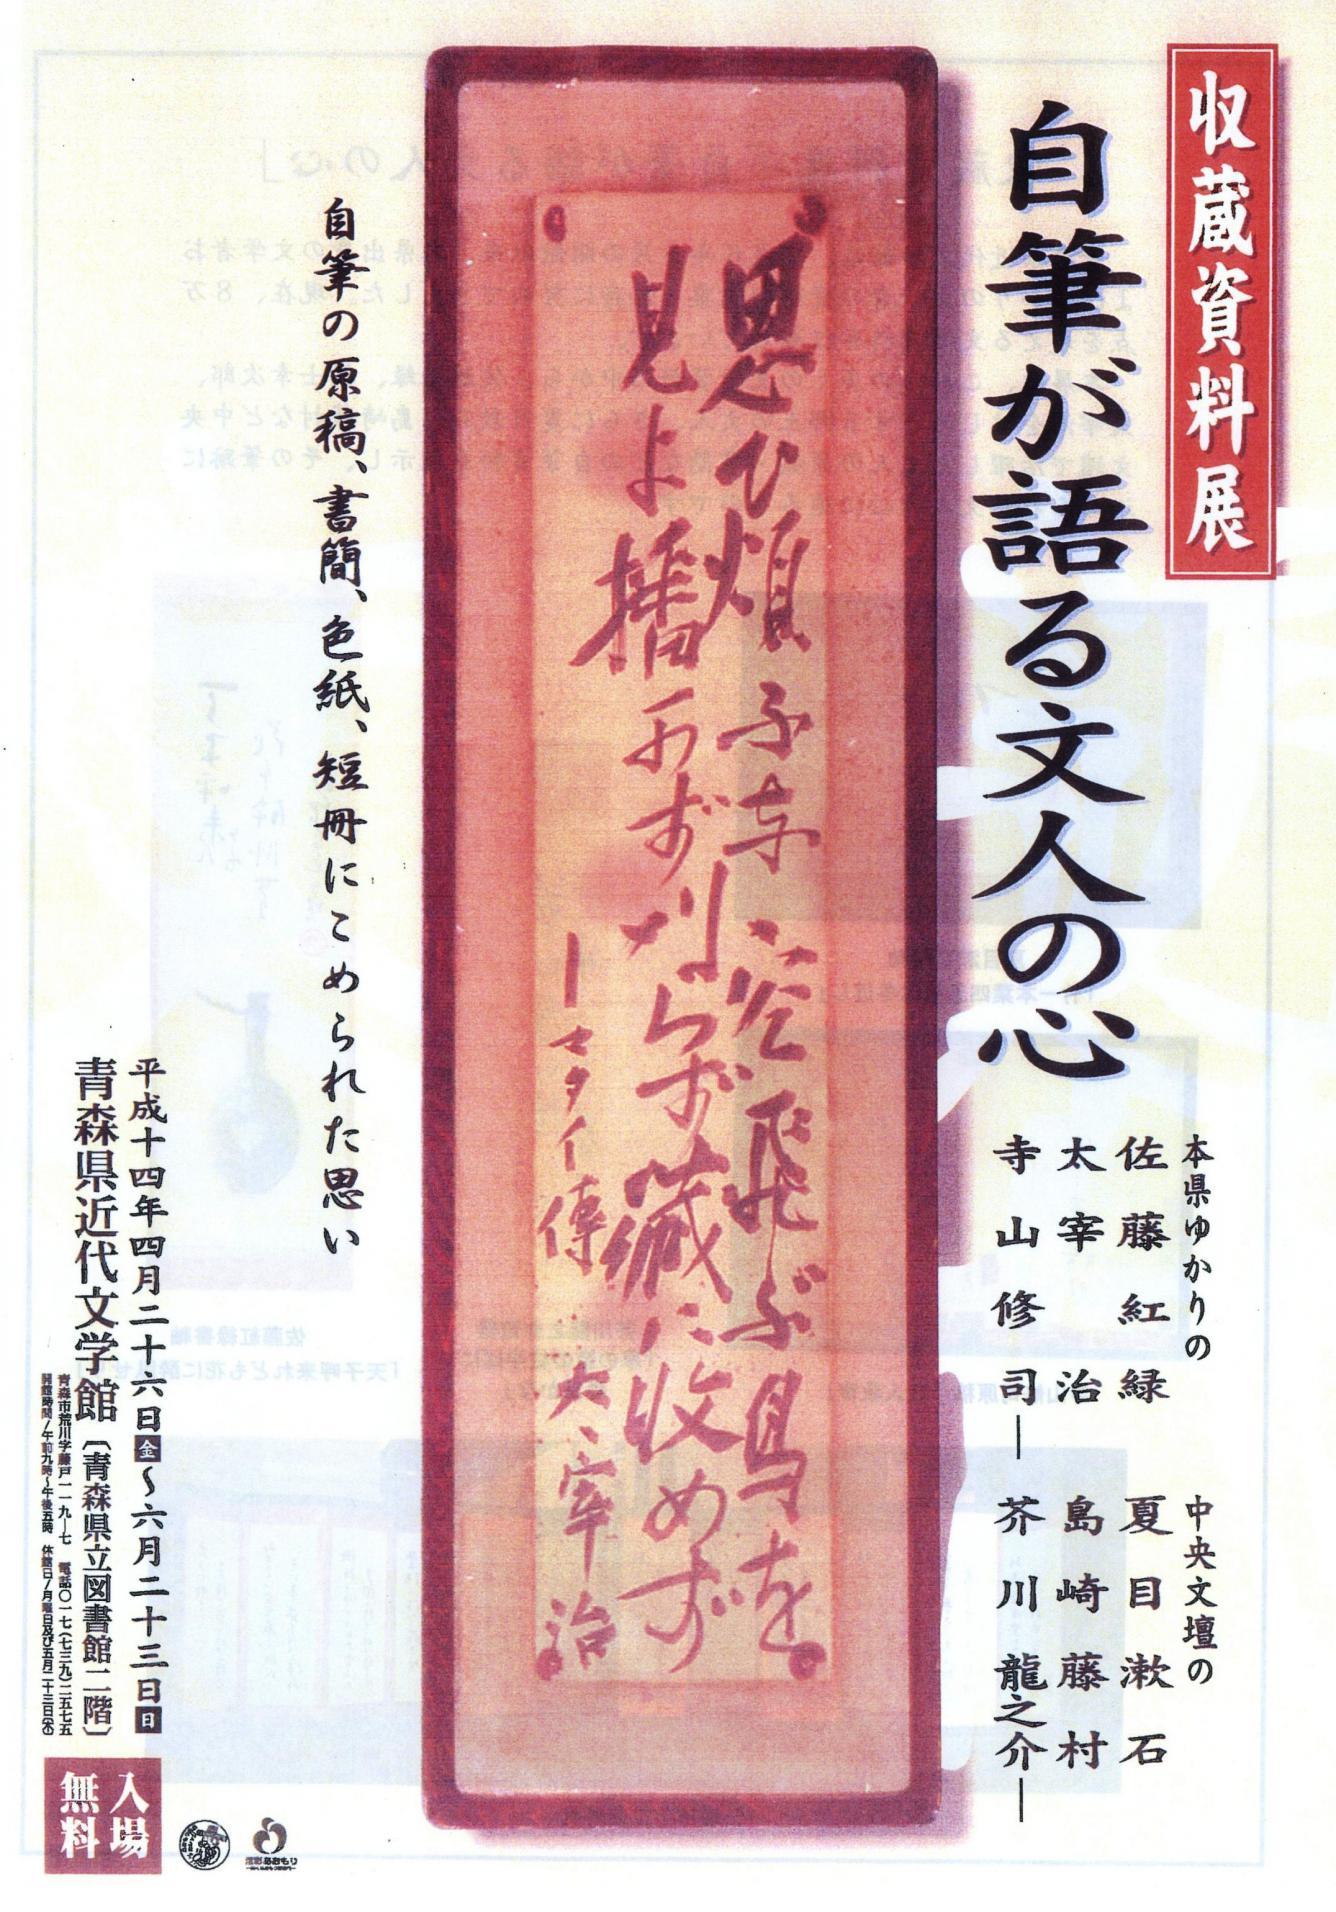 収蔵資料展
自筆が語る文人の心
本県ゆかりの
佐藤紅緑
太宰治
寺山修司―
中央文壇の
夏目漱石
島崎藤村
芥川龍之介―
思ひ煩ふな 空飛ぶ鳥を
見よ 播かず 刈らず 蔵に収めず
―マタイ傳 太宰治
自筆の原稿、書簡、色紙、短冊にこめられた思い
平成十四年四月二十六日金～六月二十三日日
青森県近代文学館〔青森県立図書館二階〕
青森市荒川字藤戸一一九―七 電話〇一七(七三九)二五七五
開館時間/午前九時~午後五時 休館日/月曜日及び五月二十三日(木)
入場
無料